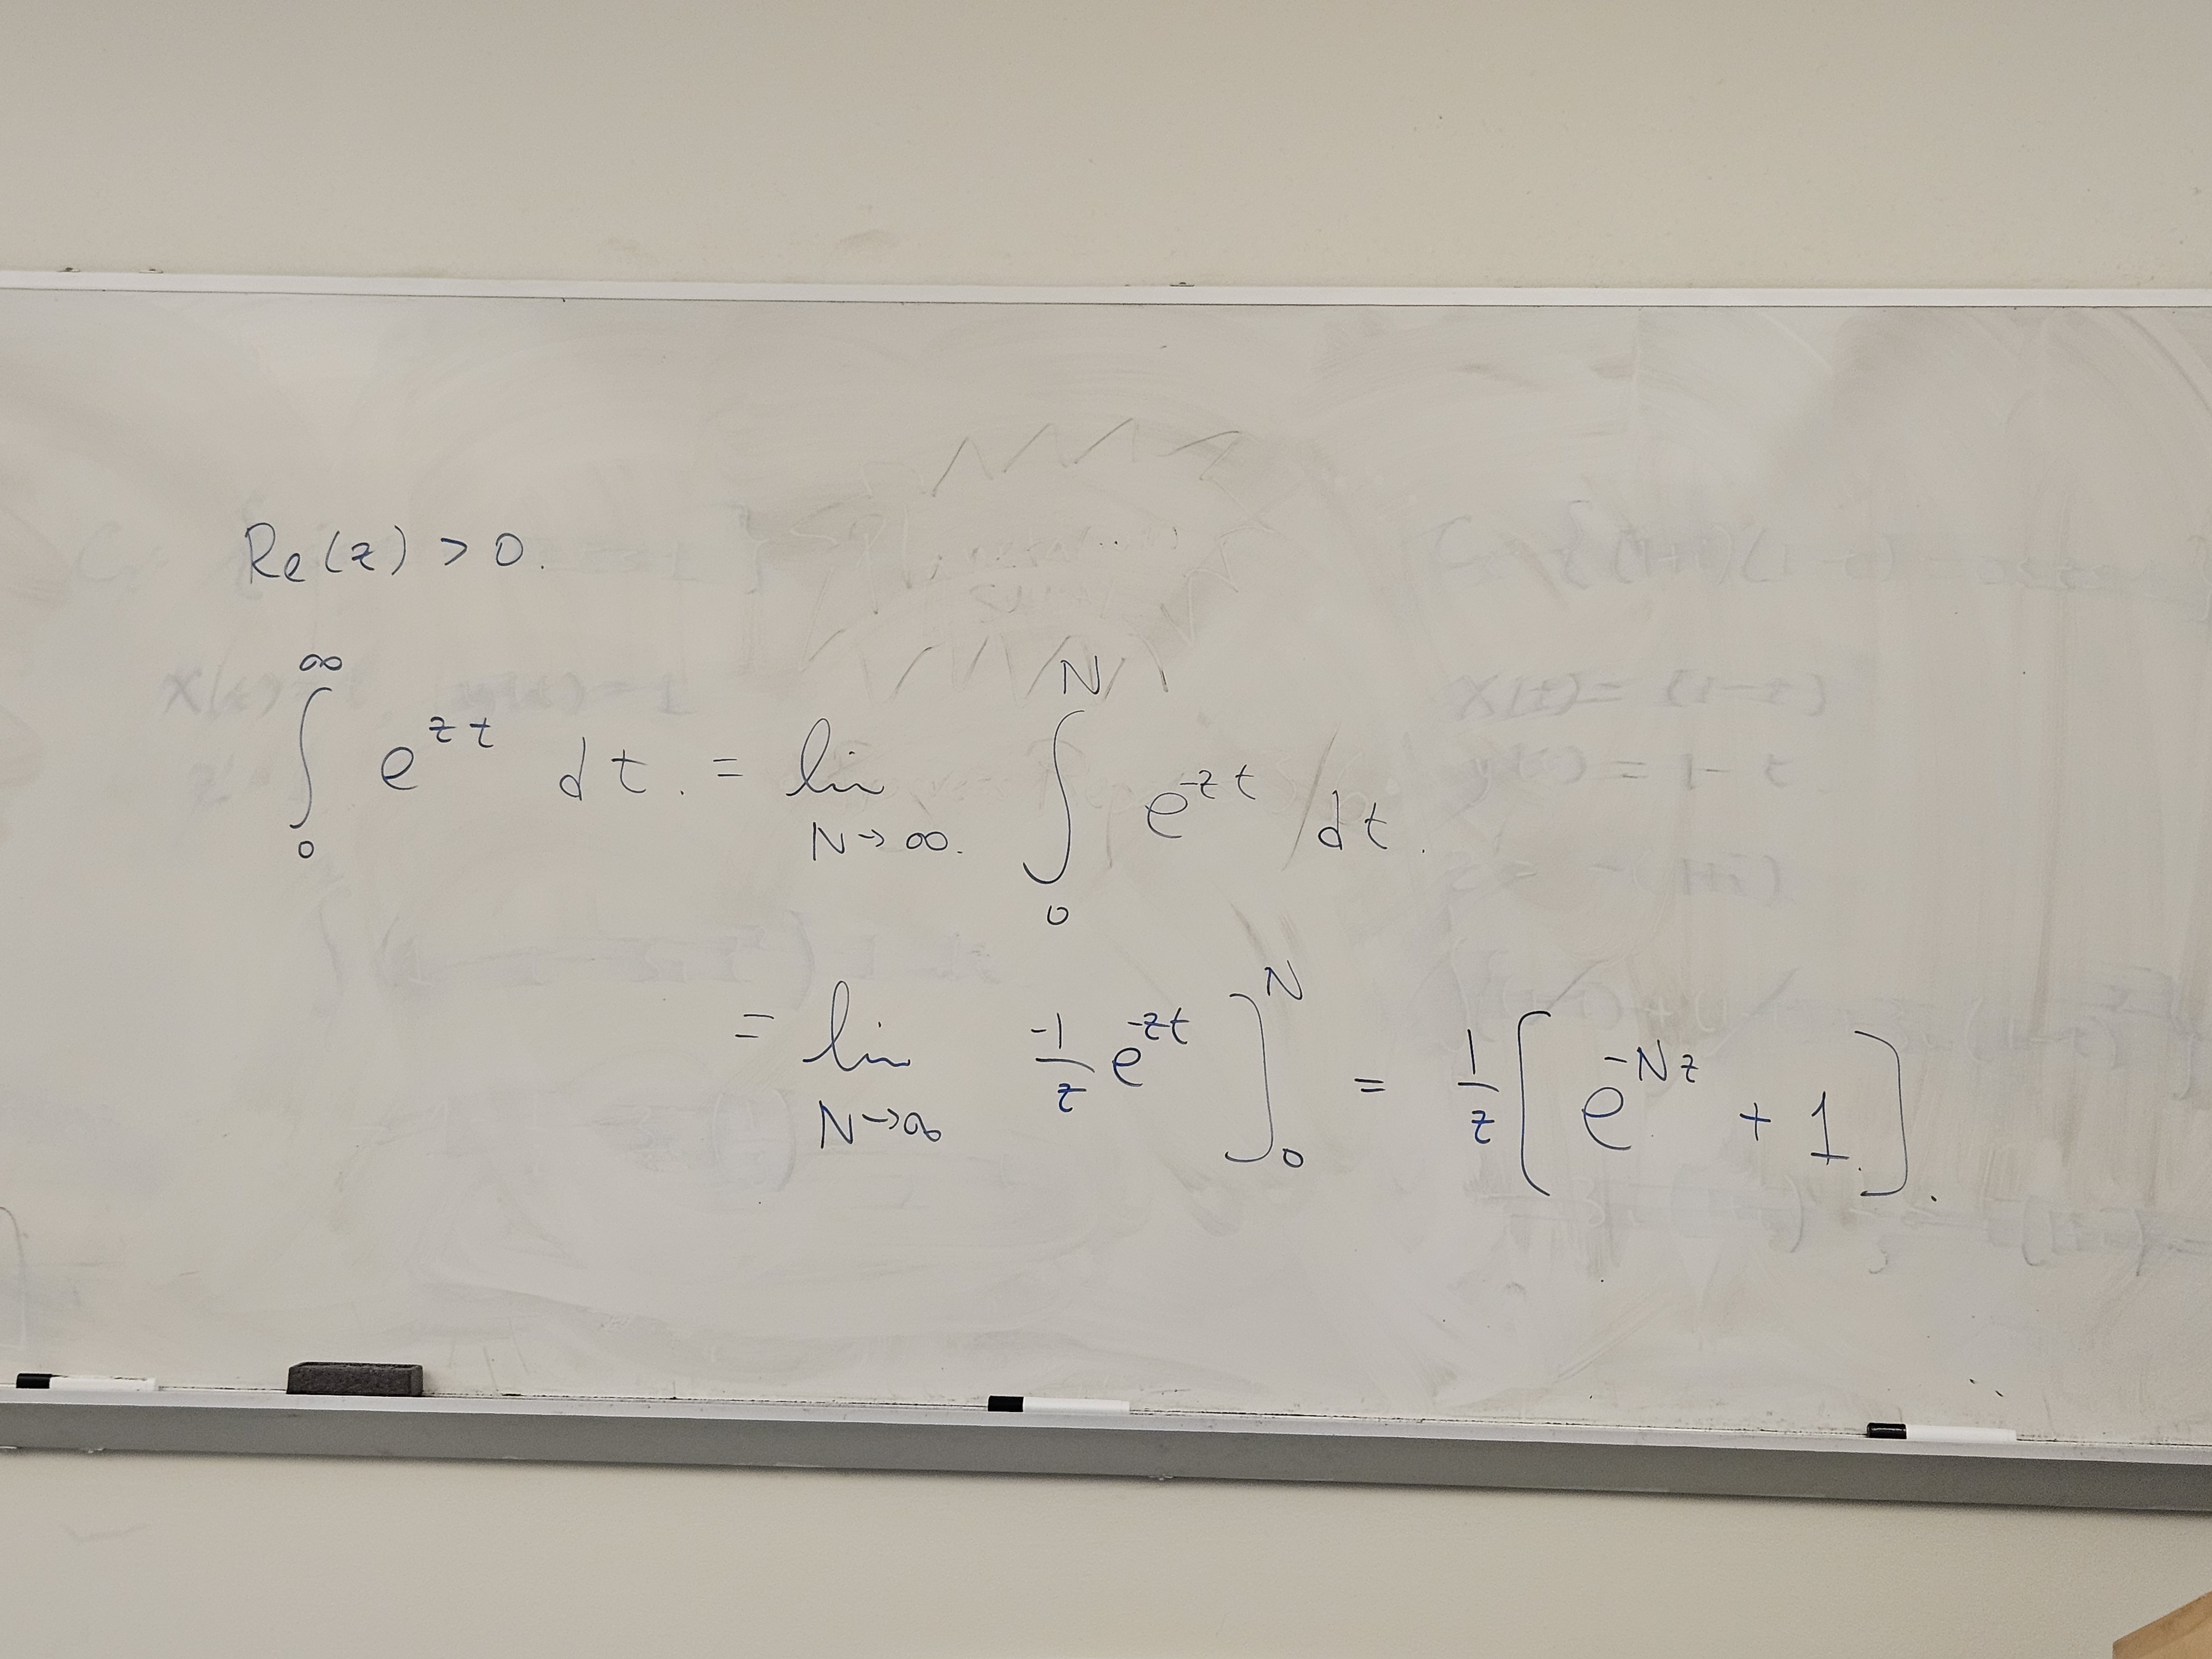 Re(z) > 0.
∫_0^∞ e^{zt} dt. = lim_{N→∞.} ∫_0^N e^{-zt} / dt.
= lim_{N→∞} \frac{-1}{z} e^{-zt} ]_0^N = \frac{1}{z} [ e^{-Nz} + 1. ].